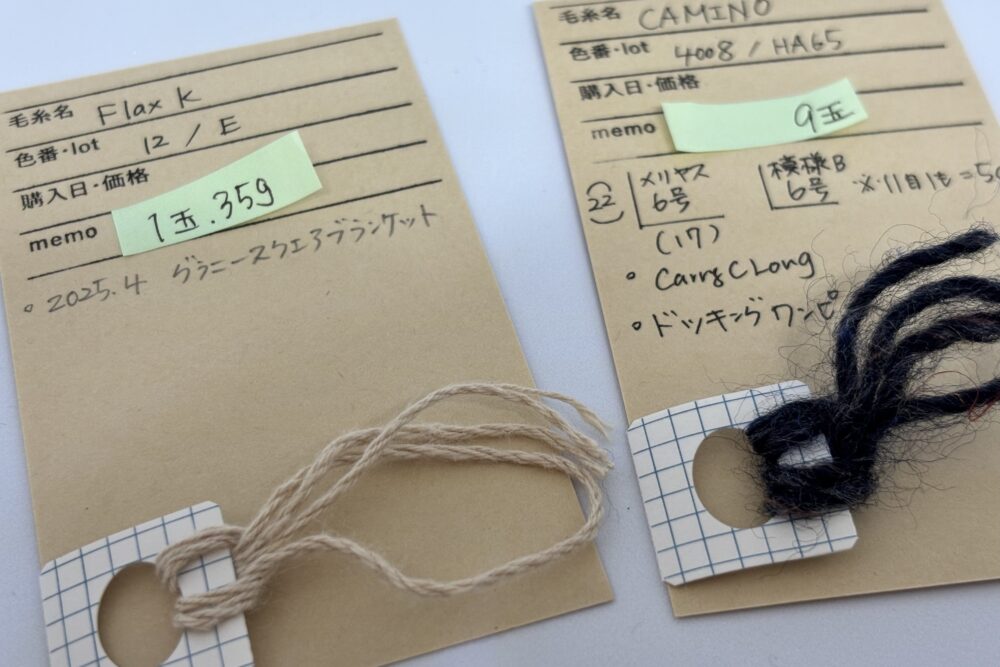 毛糸名 Flax K
色番・lot 12 / E
購入日・価格
1玉.35g
memo
。2025.4 グラニースクエアブランケット
毛糸名 CAMINO
色番・lot 4008 / HA65
購入日・価格
9玉
memo
(22) メリヤス 模様B
6号 6号
(17)
。Carry C Long
。ドッキングワンピ